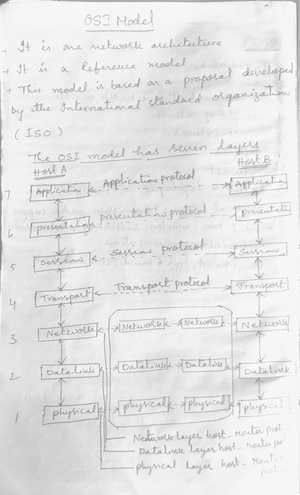 OSI Model
→ It is one network architecture
→ It is a Reference model
→ This model is based on a proposal developed
by the International standard organization
(ISO)
The OSI model has seven layers
Host A Host B
7 Application Application protocol Applicati
6 presentation presentation protocol presentati
5 Session Session protocol Session
4 Transport Transport protocol Transport
3 Network Network Network Network
2 Datalink Datalink Datalink Datalink
1 physical physical physical physical
Network layer host - router prot
Datalink layer host - router po
physical layer host - router